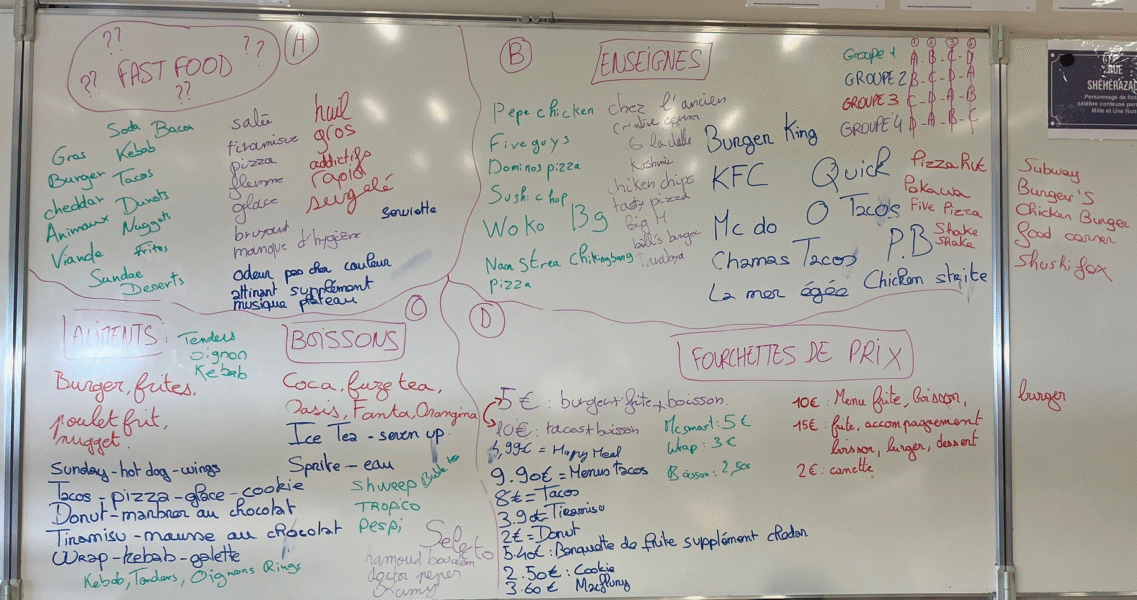 ?? ??
FAST FOOD
?? ??
A
Soda Bacon
Gras Kebab
Burger Tacos
cheddar Dunots
Animaux Nuggets
Viande Frites
Sundae
Desserts
salée
tiramisue
pizza
flemme
glace
bruyant
manque d'hygiène
huil
gros
addictifs
rapid
surgelé
serviette
odeur pas cher couleur
attirant supplément
musique plateau
B
ENSEIGNES
Pepe chicken
Five guys
Dominos pizza
Sushi chop
Woko Bg
Naan Strea Chikingbang
pizza
chez l'ancien
G la dalle
Kashmir
chiken chips
tasty pizza
Big M
bill's burger
Burger King
KFC Quick
Mc do O Tacos
Chamas Tacos P.B
La mer égée Chicken strite
Groupe 1 A-B-C-D
GROUPE 2 B-C-D-A
GROUPE 3 C-D-A-B
GROUPE 4 D-A-B-C
① ② ③ ④
Pizza Hut
Pokawa
Five Pizza
Shake
Shake
Subway
Burger's
Chicken Burger
food corner
Shushi fox
RUE
SHÉHÉRAZA
Personnage de fic
célèbre conteuse per
Mille et Une Nui
C
ALIMENTS :
Tenders
oignon
Kebab
Burger, frites,
poulet frit,
nugget.
Sunday - hot dog - wings
Tacos - pizza - glace - cookie
Donut - marbrer au chocolat
Tiramisu - mausse au chocolat
Wrap - kebab - galette
Kebab, Tenders, Oignons Rings
BOISSONS
Coca, fuze tea,
Oasis, Fanta, Orangina
Ice Tea - seven up.
Sprite - eau
Shweep
TROPICO
Pespi
Selecto
hamoud boualem
doctor peper
D
FOURCHETTES DE PRIX
5€ : burger + frite + boisson.
10€ : tacos + boisson
4,99€ = Happy Meal
9.90€ = Menus tacos
8€ = Tacos
3.90€ Tiramisu
2€ = Donut
5.40€ : Banquette de frite supplément chedar
2.50€ : Cookie
3.60€ Macflury
Mc smart : 5€
Wrap : 3€
Boisson : 2,50€
10€ : Menu frite, boisson,
burger
15€ : frite, accompagnement
boisson, burger, dessert
2€ : canette